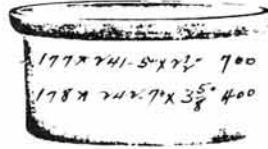 177 x 241 - 5 x 2½" 700
178 x 242 - 7" x 3⅝" 400